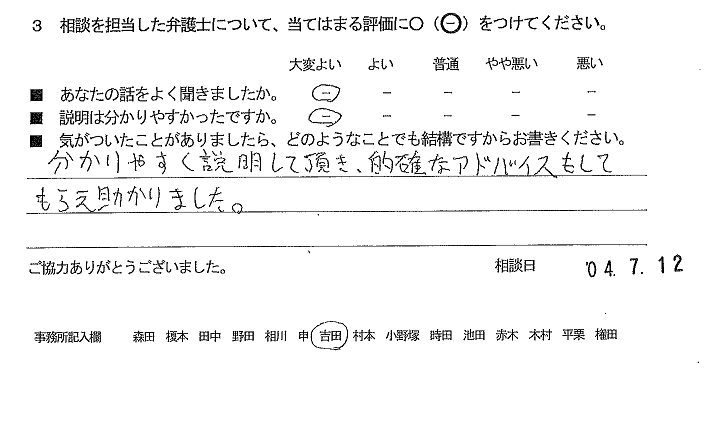 3 相談を担当した弁護士について、当てはまる評価に○（㊀）をつけてください。
大変よい よい 普通 やや悪い 悪い
■ あなたの話をよく聞きましたか。 － － － － －
■ 説明は分かりやすかったですか。 － － － － －
■ 気がついたことがありましたら、どのようなことでも結構ですからお書きください。
分かりやすく説明して頂き、的確なアドバイスもして
もらえ助かりました。
ご協力ありがとうございました。 相談日 '04.7.12
事務所記入欄 森田 榎本 田中 野田 相川 申 吉田 村本 小野塚 時田 池田 赤木 木村 平栗 権田